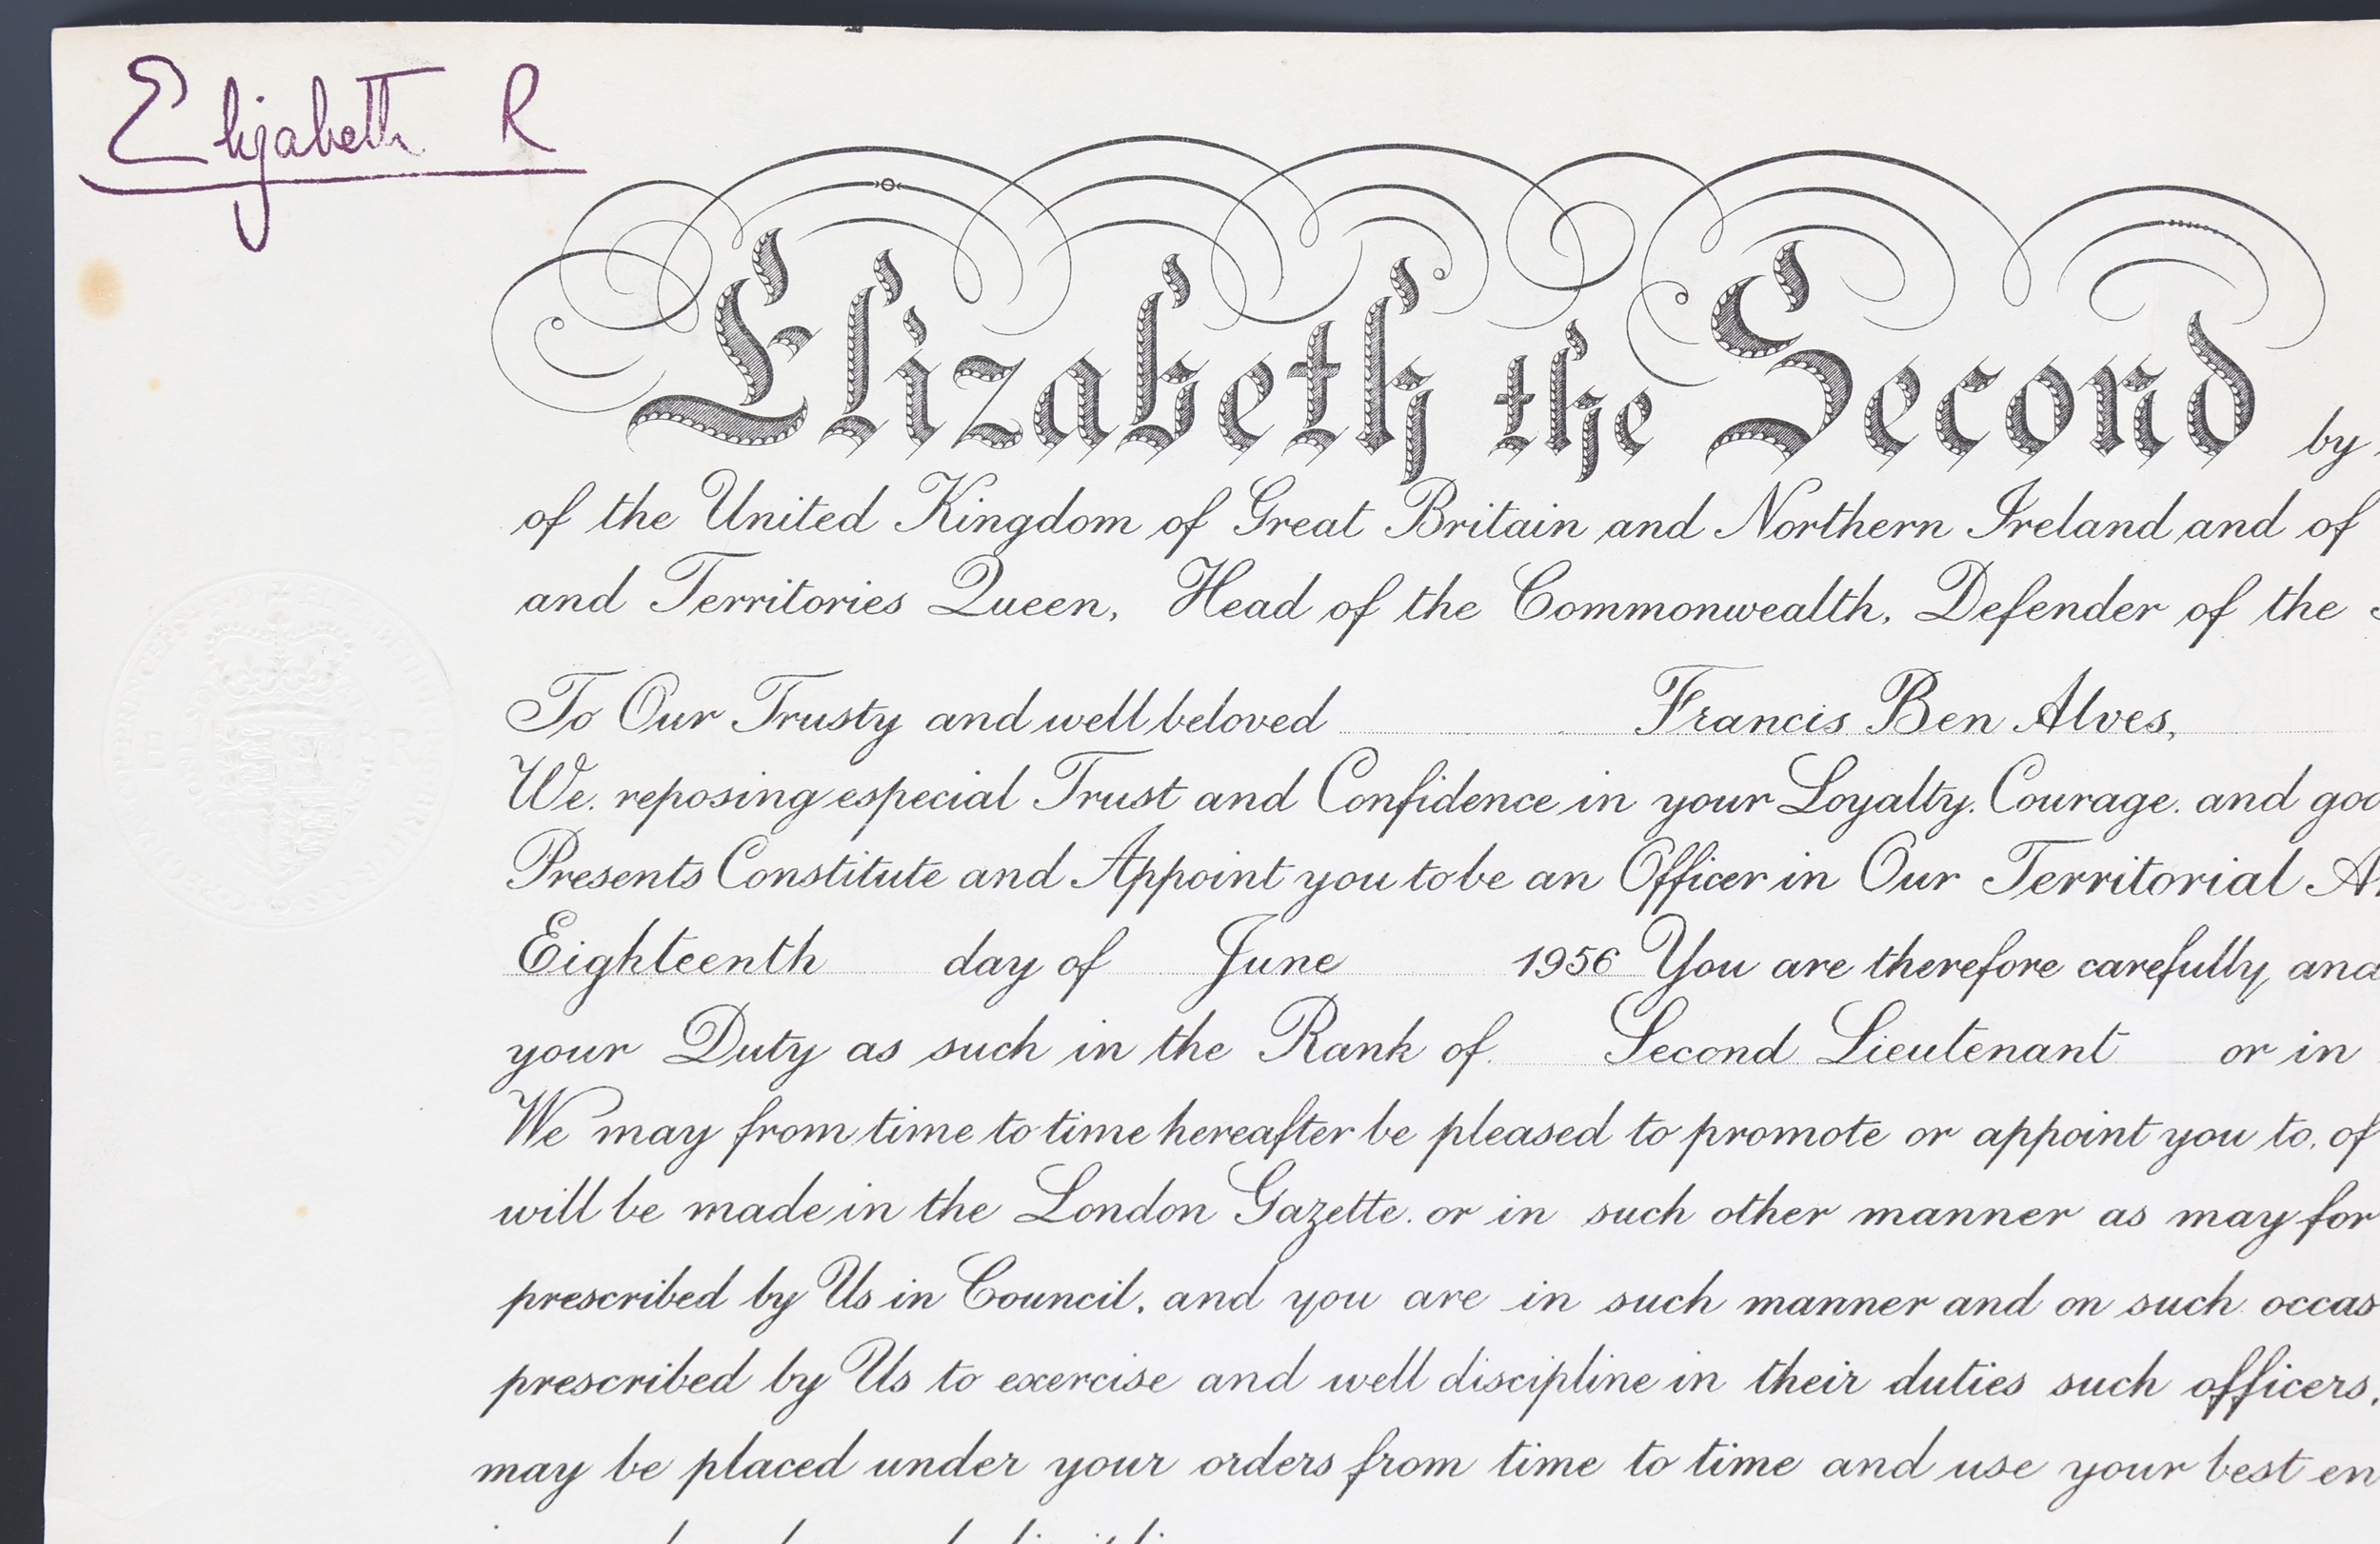 Elizabeth R
Elizabeth the Second by
of the United Kingdom of Great Britain and Northern Ireland and of
and Territories Queen, Head of the Commonwealth, Defender of the
To Our Trusty and well beloved Francis Ben Alves,
We, reposing especial Trust and Confidence in your Loyalty, Courage, and goo
Presents Constitute and Appoint you to be an Officer in Our Territorial A
Eighteenth day of June 1956 You are therefore carefully and
your Duty as such in the Rank of Second Lieutenant or in
We may from time to time hereafter be pleased to promote or appoint you to, of
will be made in the London Gazette, or in such other manner as may for
prescribed by Us in Council, and you are in such manner and on such occas
prescribed by Us to exercise and well discipline in their duties such officers,
may be placed under your orders from time to time and use your best en